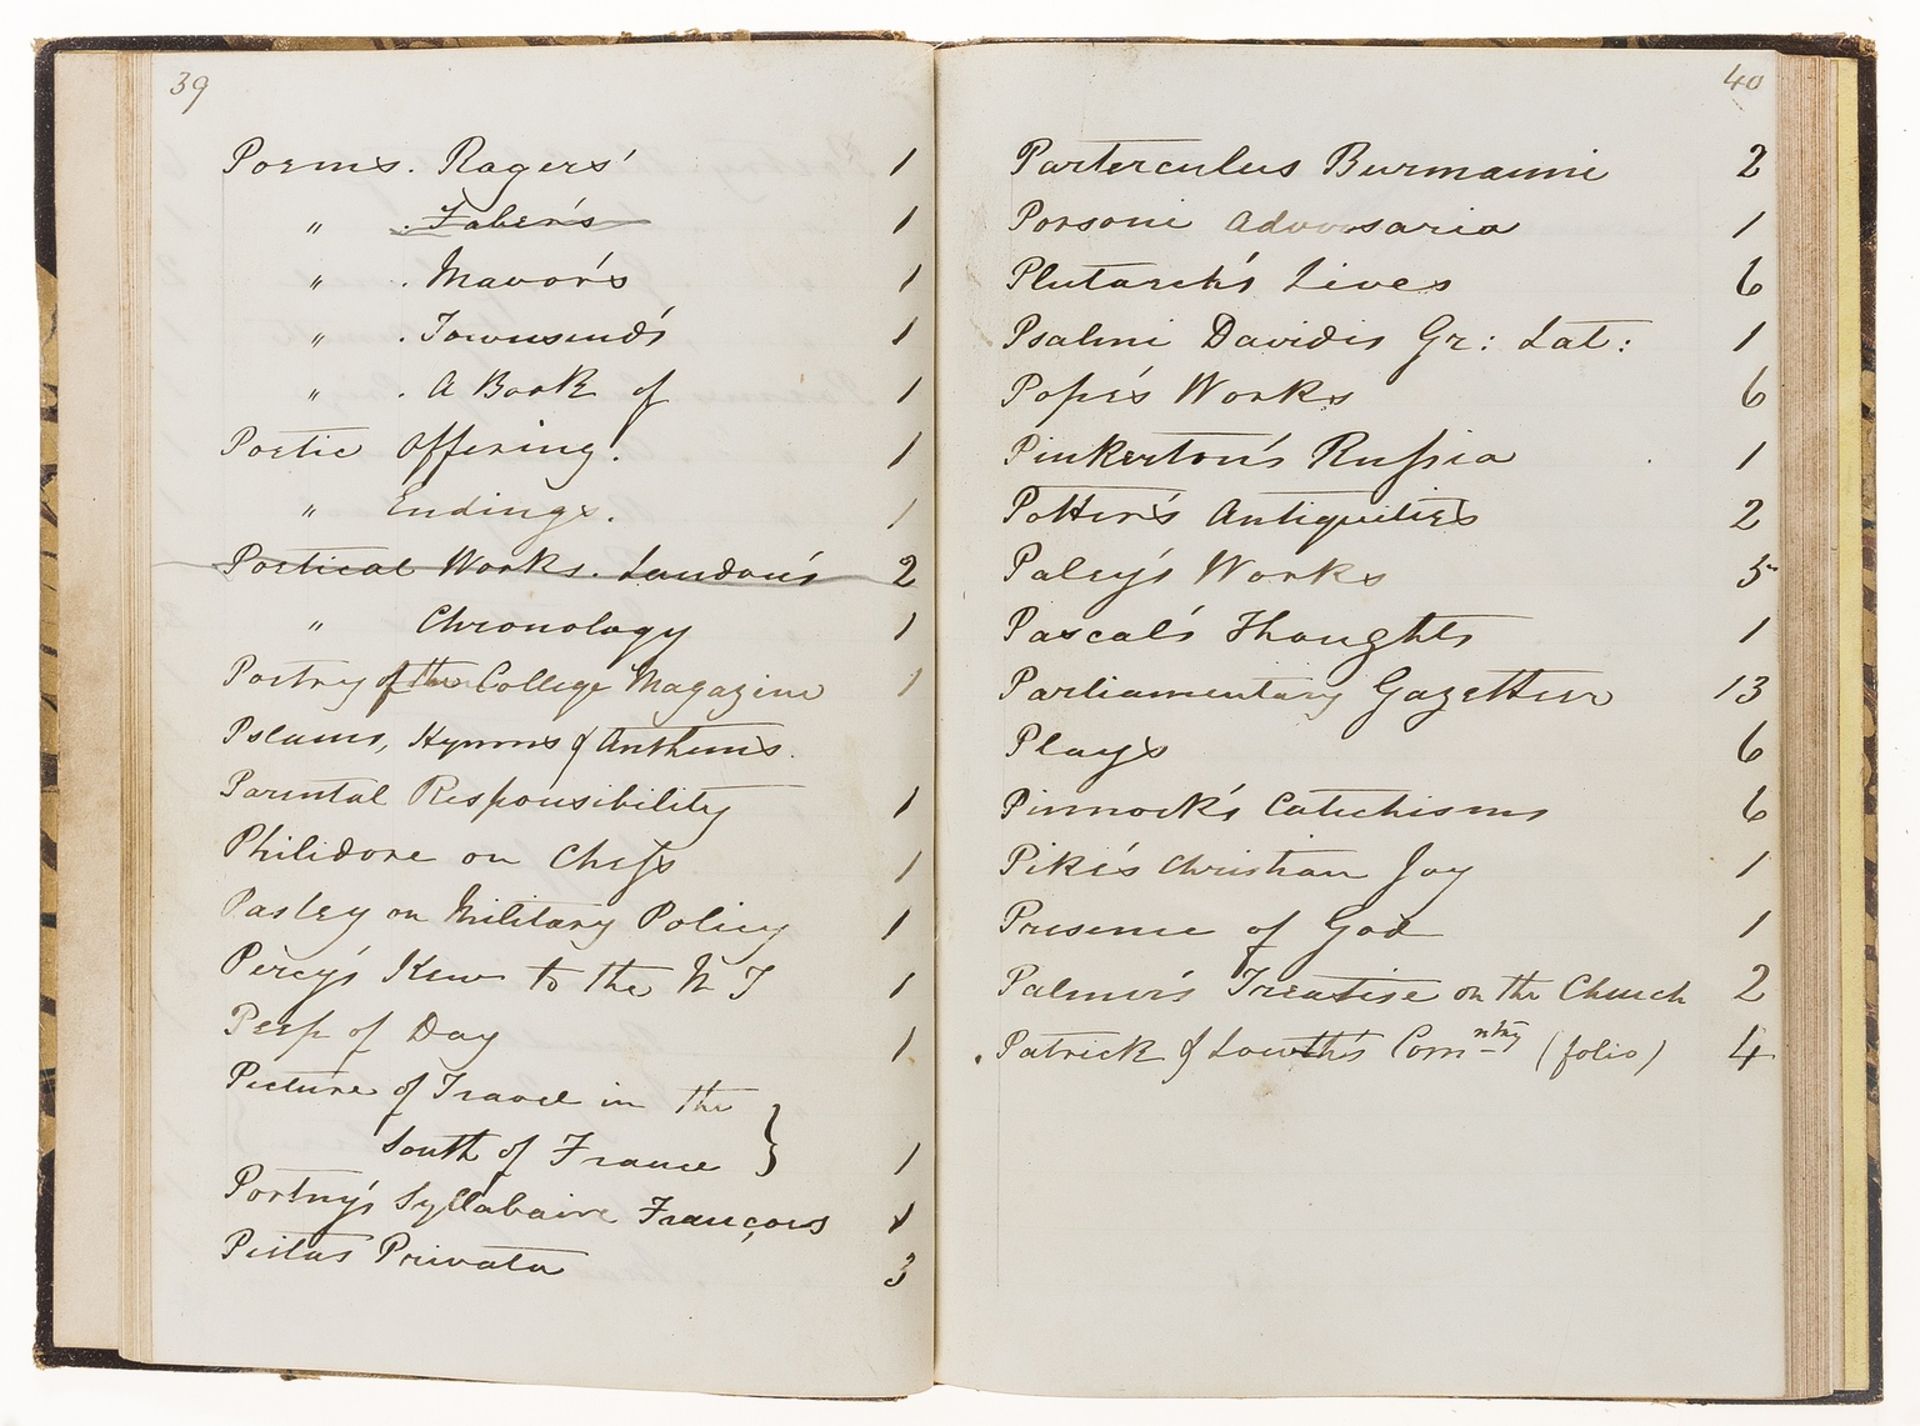 39
Poems. Rogers' 1
" . Faber's 1
" . Mavor's 1
" . Townsend's 1
" . A Book of 1
Poetic Offering. 1
" Endings. 1
Poetical Works. Landon's 2
" Chronology 1
Poetry of the College Magazine 1
Pslams, Hymns & Anthems.
Parental Responsibility 1
Philidore on Chess 1
Pasley on Military Policy 1
Percy's Key to the N T 1
Peep of Day 1
Picture of Travel in the
South of France } 1
Portny's Syllabaire Françows 1
Pietas Privata 3
40
Parterculus Burmanni 2
Porsoni Adversaria 1
Plutarch's Lives 6
Psalmi Davidis Gr: Lat: 1
Pope's Works 6
Pinkerton's Russia 1
Potter's Antiquities 2
Paley's Works 5
Pascal's Thoughts 1
Parliamentary Gazetteer 13
Plays 6
Pinnock's Catechisms 6
Pike's Christian Joy 1
Presence of God 1
Palmer's Treatise on the Church 2
Patrick & Lowth's Comntry (folio) 4